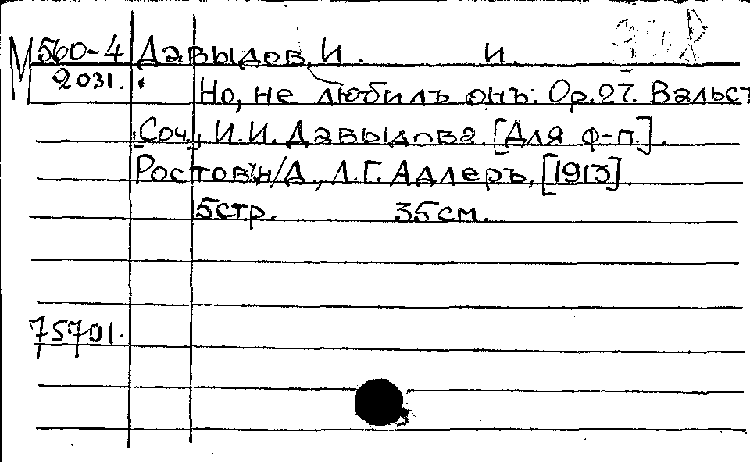 М 560-4 Давыдов, И. И.
2031.
Но, не любилъ онъ: Op.27. Вальс
[Соч.] И.И. Давыдова. [Для ф-п.].
Ростов н/Д., Л.Г. Адлеръ, [1913]
5стр. 35см.
75701.